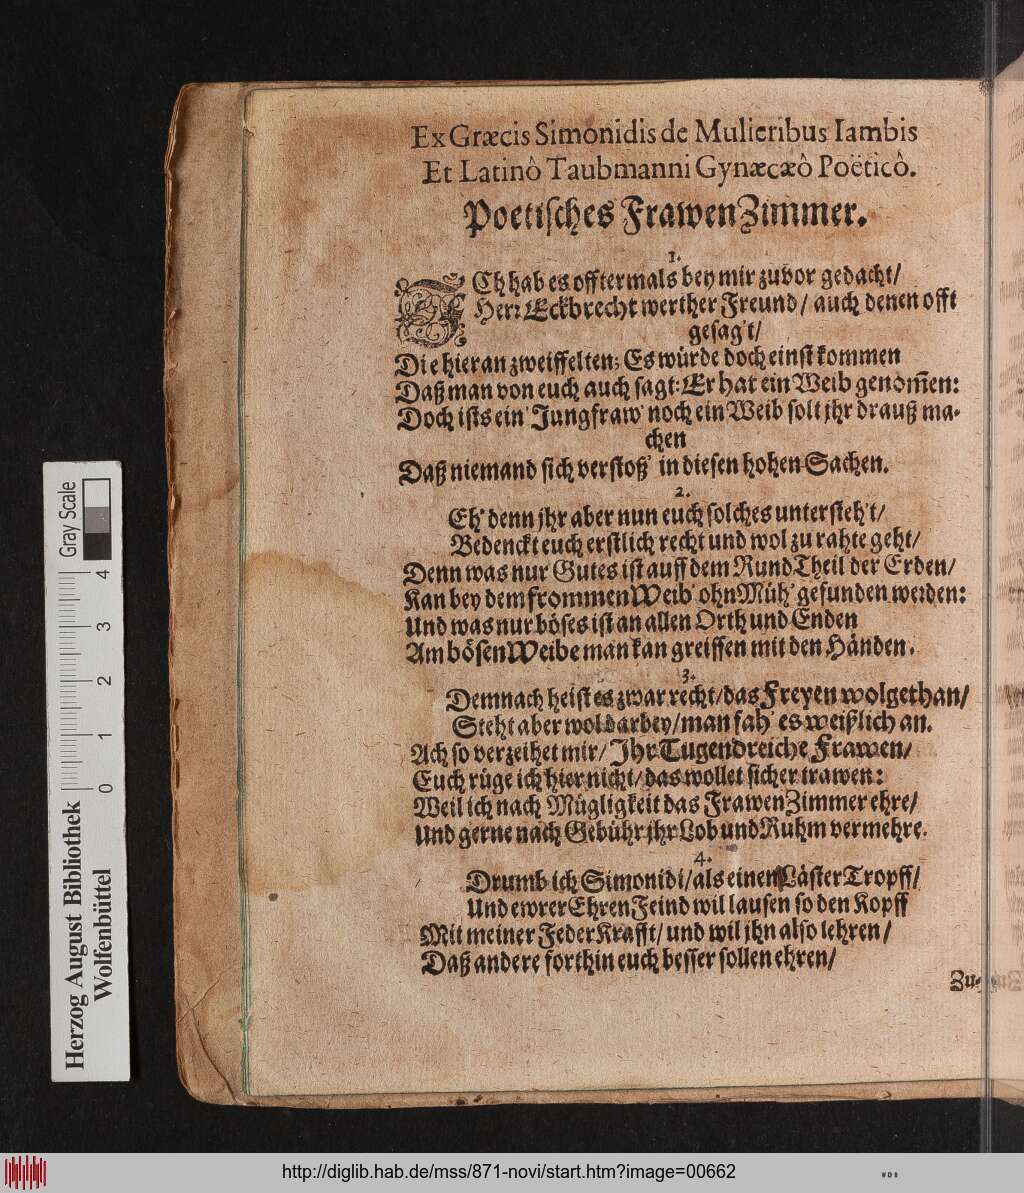 Ex Græcis Simonidis de Mulieribus Iambis
Et Latinô Taubmanni Gynæcæô Poëticô.
Poetisches FrawenZimmer.
1.
ICh hab es offtermals bey mir zuvor gedacht/
Herꝛ Eckbrecht werther Freund/ auch denen offt
gesag't/
Die hieran zweiffelten; Es würde doch einst kommen
Daß man von euch auch sagt: Er hat ein Weib genom̃en:
Doch ists ein' Jungfraw' noch ein Weib solt jhr drauß ma-
chen
Daß niemand sich verstoß' in diesen hohen Sachen.
2.
Eh' denn jhr aber nun euch solches untersteh't/
Bedenckt euch erstlich recht und wol zu rahte geht/
Denn was nur Gutes ist auff dem RundTheil der Erden/
Kan bey dem frommen Weib' ohn Müh' gefunden werden:
Und was nur böses ist an allen Orth und Enden
Am bösen Weibe man kan greiffen mit den Händen.
3.
Demnach heist es zwar recht/ das Freyen wolgethan/
Steht aber wol darbey/ man fah' es weißlich an.
Ach so verzeihet mir/ Jhr Tugendreiche Frawen/
Euch rüge ich hier nicht/ das wollet sicher trawen:
Weil ich nach Mügligkeit das FrawenZimmer ehre/
Und gerne nach Gebühr jhr Lob und Ruhm vermehre.
4.
Drumb ich Simonidi/ als einen LästerTropff/
Und ewrer Ehren Feind wil lausen so den Kopff
Mit meiner FederKrafft/ und wil jhn also lehren/
Daß andere forthin euch besser sollen ehren/
Gray Scale
0 1 2 3 4
Herzog August Bibliothek
Wolfenbüttel
http://diglib.hab.de/mss/871-novi/start.htm?image=00662